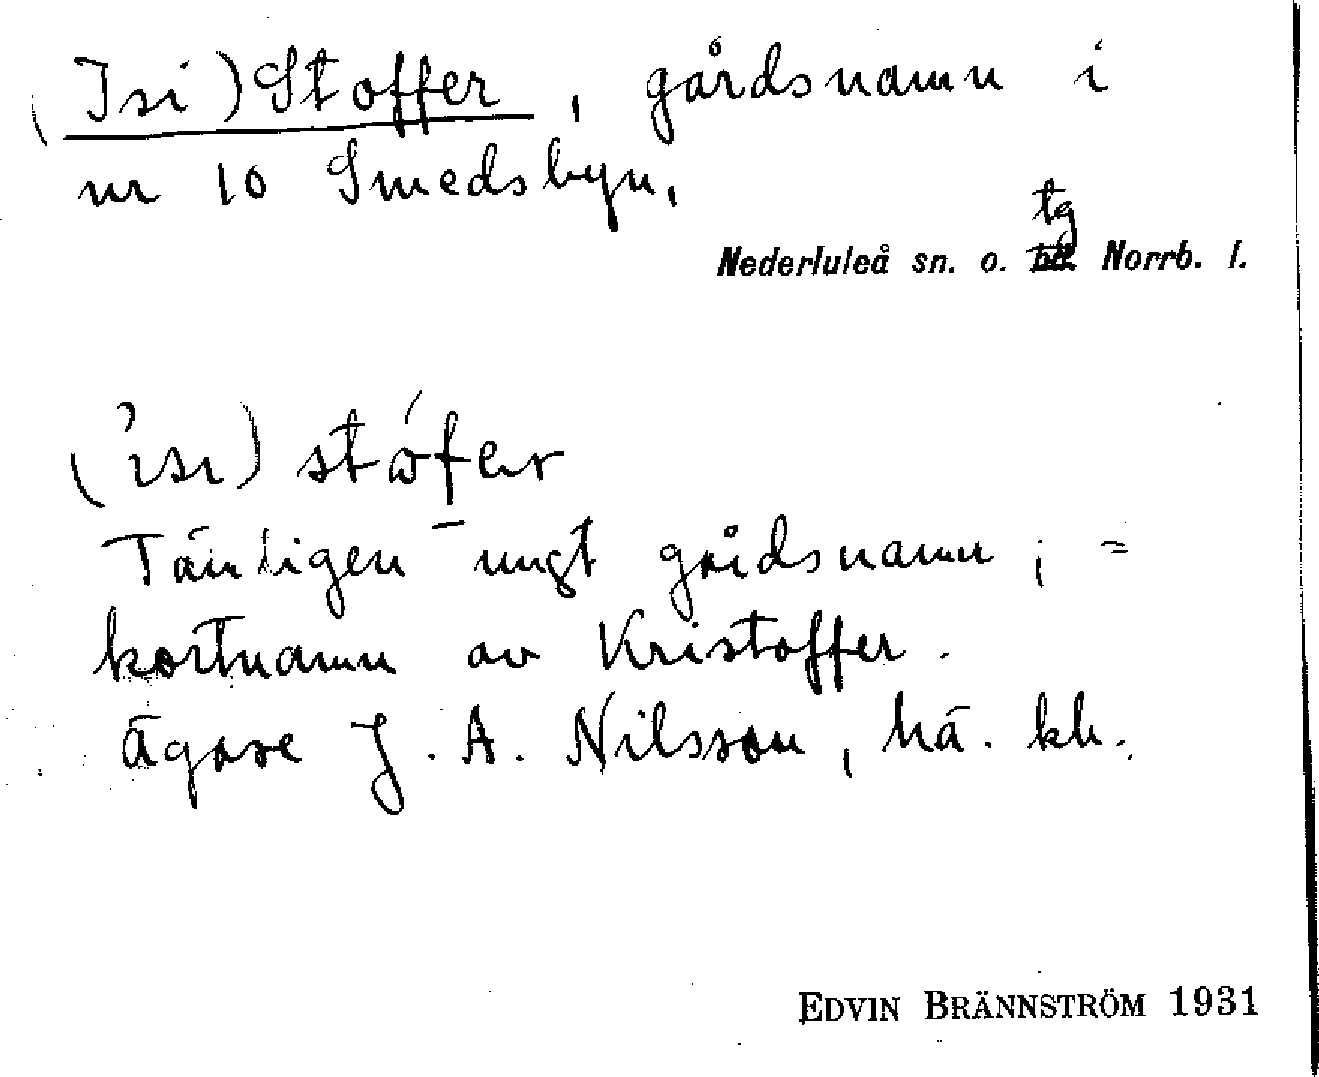 (Isi) Stoffer, gårdsnamn i
nr 10 Smedsbyn,
tg
Nederluleå sn. o. Norrb. l.
(ısı) stófer
Tämligen ungt gårdsnamn; =
kortnamn av Kristoffer.
Ägare J. A. Nilsson, hä. kh.
EDVIN BRÄNNSTRÖM 1931